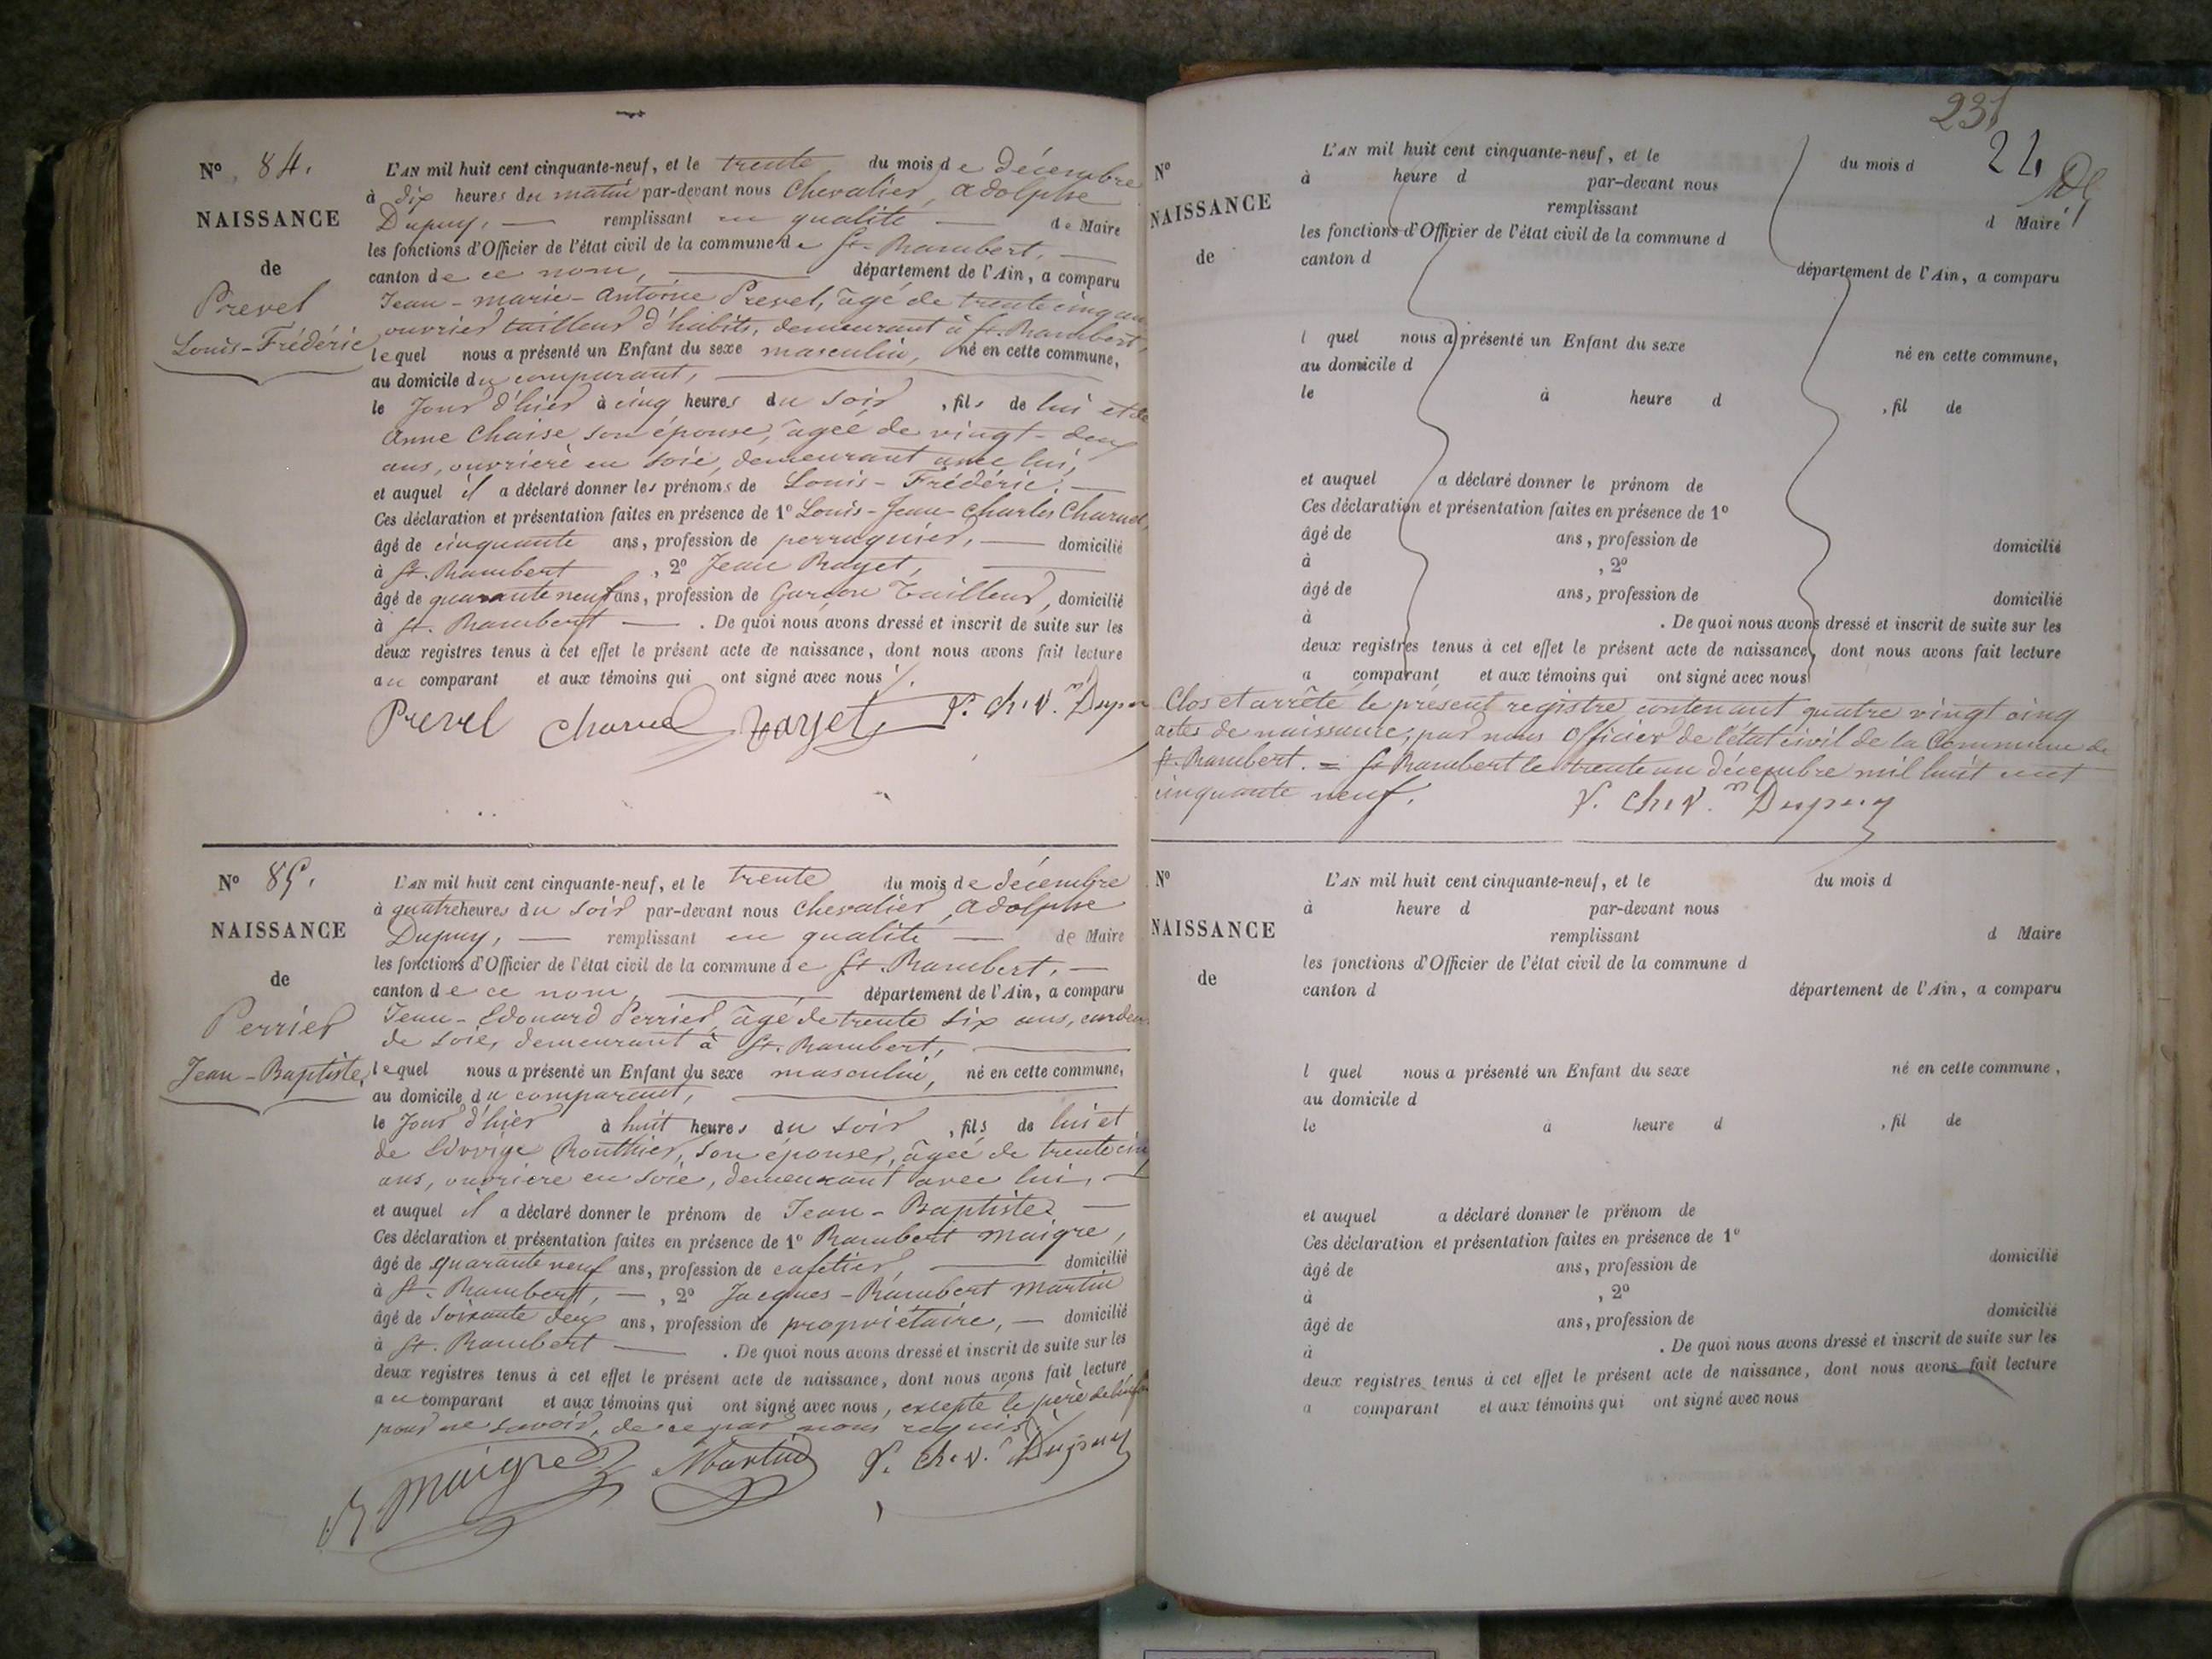 N° 84.
NAISSANCE
de
Prevel
Louis-Frédéric
L'AN mil huit cent cinquante-neuf, et le trente du mois de décembre
à dix heures du matin par-devant nous Chevalier, Adolphe
Dupuy, — remplissant en qualité — de Maire
les fonctions d'Officier de l'état civil de la commune de St. Rambert, —
canton de ce nom, — département de l'Ain, a comparu
Jean-marie-Antoine Prevel, âgé de trente cinq ans
ouvrier tailleur d'habits, demeurant à St. Rambert,
lequel nous a présenté un Enfant du sexe masculin, né en cette commune,
au domicile du comparant, —
le Jour d'hier à cinq heures du soir, fils de lui et de
Anne Chaise son épouse, âgée de vingt-deux
ans, ouvrière en soie, demeurant avec lui,
et auquel il a déclaré donner les prénoms de Louis-Frédéric. —
Ces déclaration et présentation faites en présence de 1° Louis-Jean-Charles Charvet,
âgé de cinquante ans, profession de perruquier, — domicilié
à St. Rambert, 2° Jean Rayet, —
âgé de quarante neuf ans, profession de Garçon Tailleur, domicilié
à St. Rambert — . De quoi nous avons dressé et inscrit de suite sur les
deux registres tenus à cet effet le présent acte de naissance, dont nous avons fait lecture
au comparant et aux témoins qui ont signé avec nous ./.
Prevel Charvet Rayet Ch. v. Dupuy
N° 85.
NAISSANCE
de
Perrier
Jean-Baptiste,
L'AN mil huit cent cinquante-neuf, et le trente du mois de décembre
à quatre heures du soir par-devant nous Chevalier, Adolphe
Dupuy, — remplissant en qualité — de Maire
les fonctions d'Officier de l'état civil de la commune de St. Rambert, —
canton de ce nom, — département de l'Ain, a comparu
Jean-Edouard Perrier, âgé de trente six ans, cardeur
de soie, demeurant à St. Rambert, —
lequel nous a présenté un Enfant du sexe masculin, né en cette commune,
au domicile du comparant, —
le Jour d'hier à huit heures du soir, fils de lui et
de Edwige Routhier, son épouse, âgée de trente cinq
ans, ouvrière en soie, demeurant avec lui, —
et auquel il a déclaré donner le prénom de Jean-Baptiste —
Ces déclaration et présentation faites en présence de 1° Rambert Maigre,
âgé de quarante neuf ans, profession de cafetier, — domicilié
à St. Rambert, — , 2° Jacques-Rambert Martin
âgé de soixante deux ans, profession de propriétaire, — domicilié
à St. Rambert — . De quoi nous avons dressé et inscrit de suite sur les
deux registres tenus à cet effet le présent acte de naissance, dont nous avons fait lecture
au comparant et aux témoins qui ont signé avec nous, excepté le père de l'enfant
pour ne savoir, de ce par nous requis ./.
R Maigre Martin Ch. v. Dupuy
231
22
N°
NAISSANCE
de
L'AN mil huit cent cinquante-neuf, et le du mois d
à heure d par-devant nous
remplissant d Maire
les fonctions d'Officier de l'état civil de la commune d
canton d département de l'Ain, a comparu
l quel nous a présenté un Enfant du sexe né en cette commune,
au domicile d
le à heure d , fil de
et auquel a déclaré donner le prénom de
Ces déclaration et présentation faites en présence de 1°
âgé de ans, profession de domicilié
à , 2°
âgé de ans, profession de domicilié
à . De quoi nous avons dressé et inscrit de suite sur les
deux registres tenus à cet effet le présent acte de naissance, dont nous avons fait lecture
a comparant et aux témoins qui ont signé avec nous
Clos et arrêté le présent registre contenant quatre vingt cinq
actes de naissance, par nous Officier de l'état civil de la Commune de
St. Rambert. = St Rambert le trente un décembre mil huit cent
cinquante neuf.
Ch. v. Dupuy
N°
NAISSANCE
de
L'AN mil huit cent cinquante-neuf, et le du mois d
à heure d par-devant nous
remplissant d Maire
les fonctions d'Officier de l'état civil de la commune d
canton d département de l'Ain, a comparu
l quel nous a présenté un Enfant du sexe né en cette commune,
au domicile d
le à heure d , fil de
et auquel a déclaré donner le prénom de
Ces déclaration et présentation faites en présence de 1°
âgé de ans, profession de domicilié
à , 2°
âgé de ans, profession de domicilié
à . De quoi nous avons dressé et inscrit de suite sur les
deux registres tenus à cet effet le présent acte de naissance, dont nous avons fait lecture
a comparant et aux témoins qui ont signé avec nous